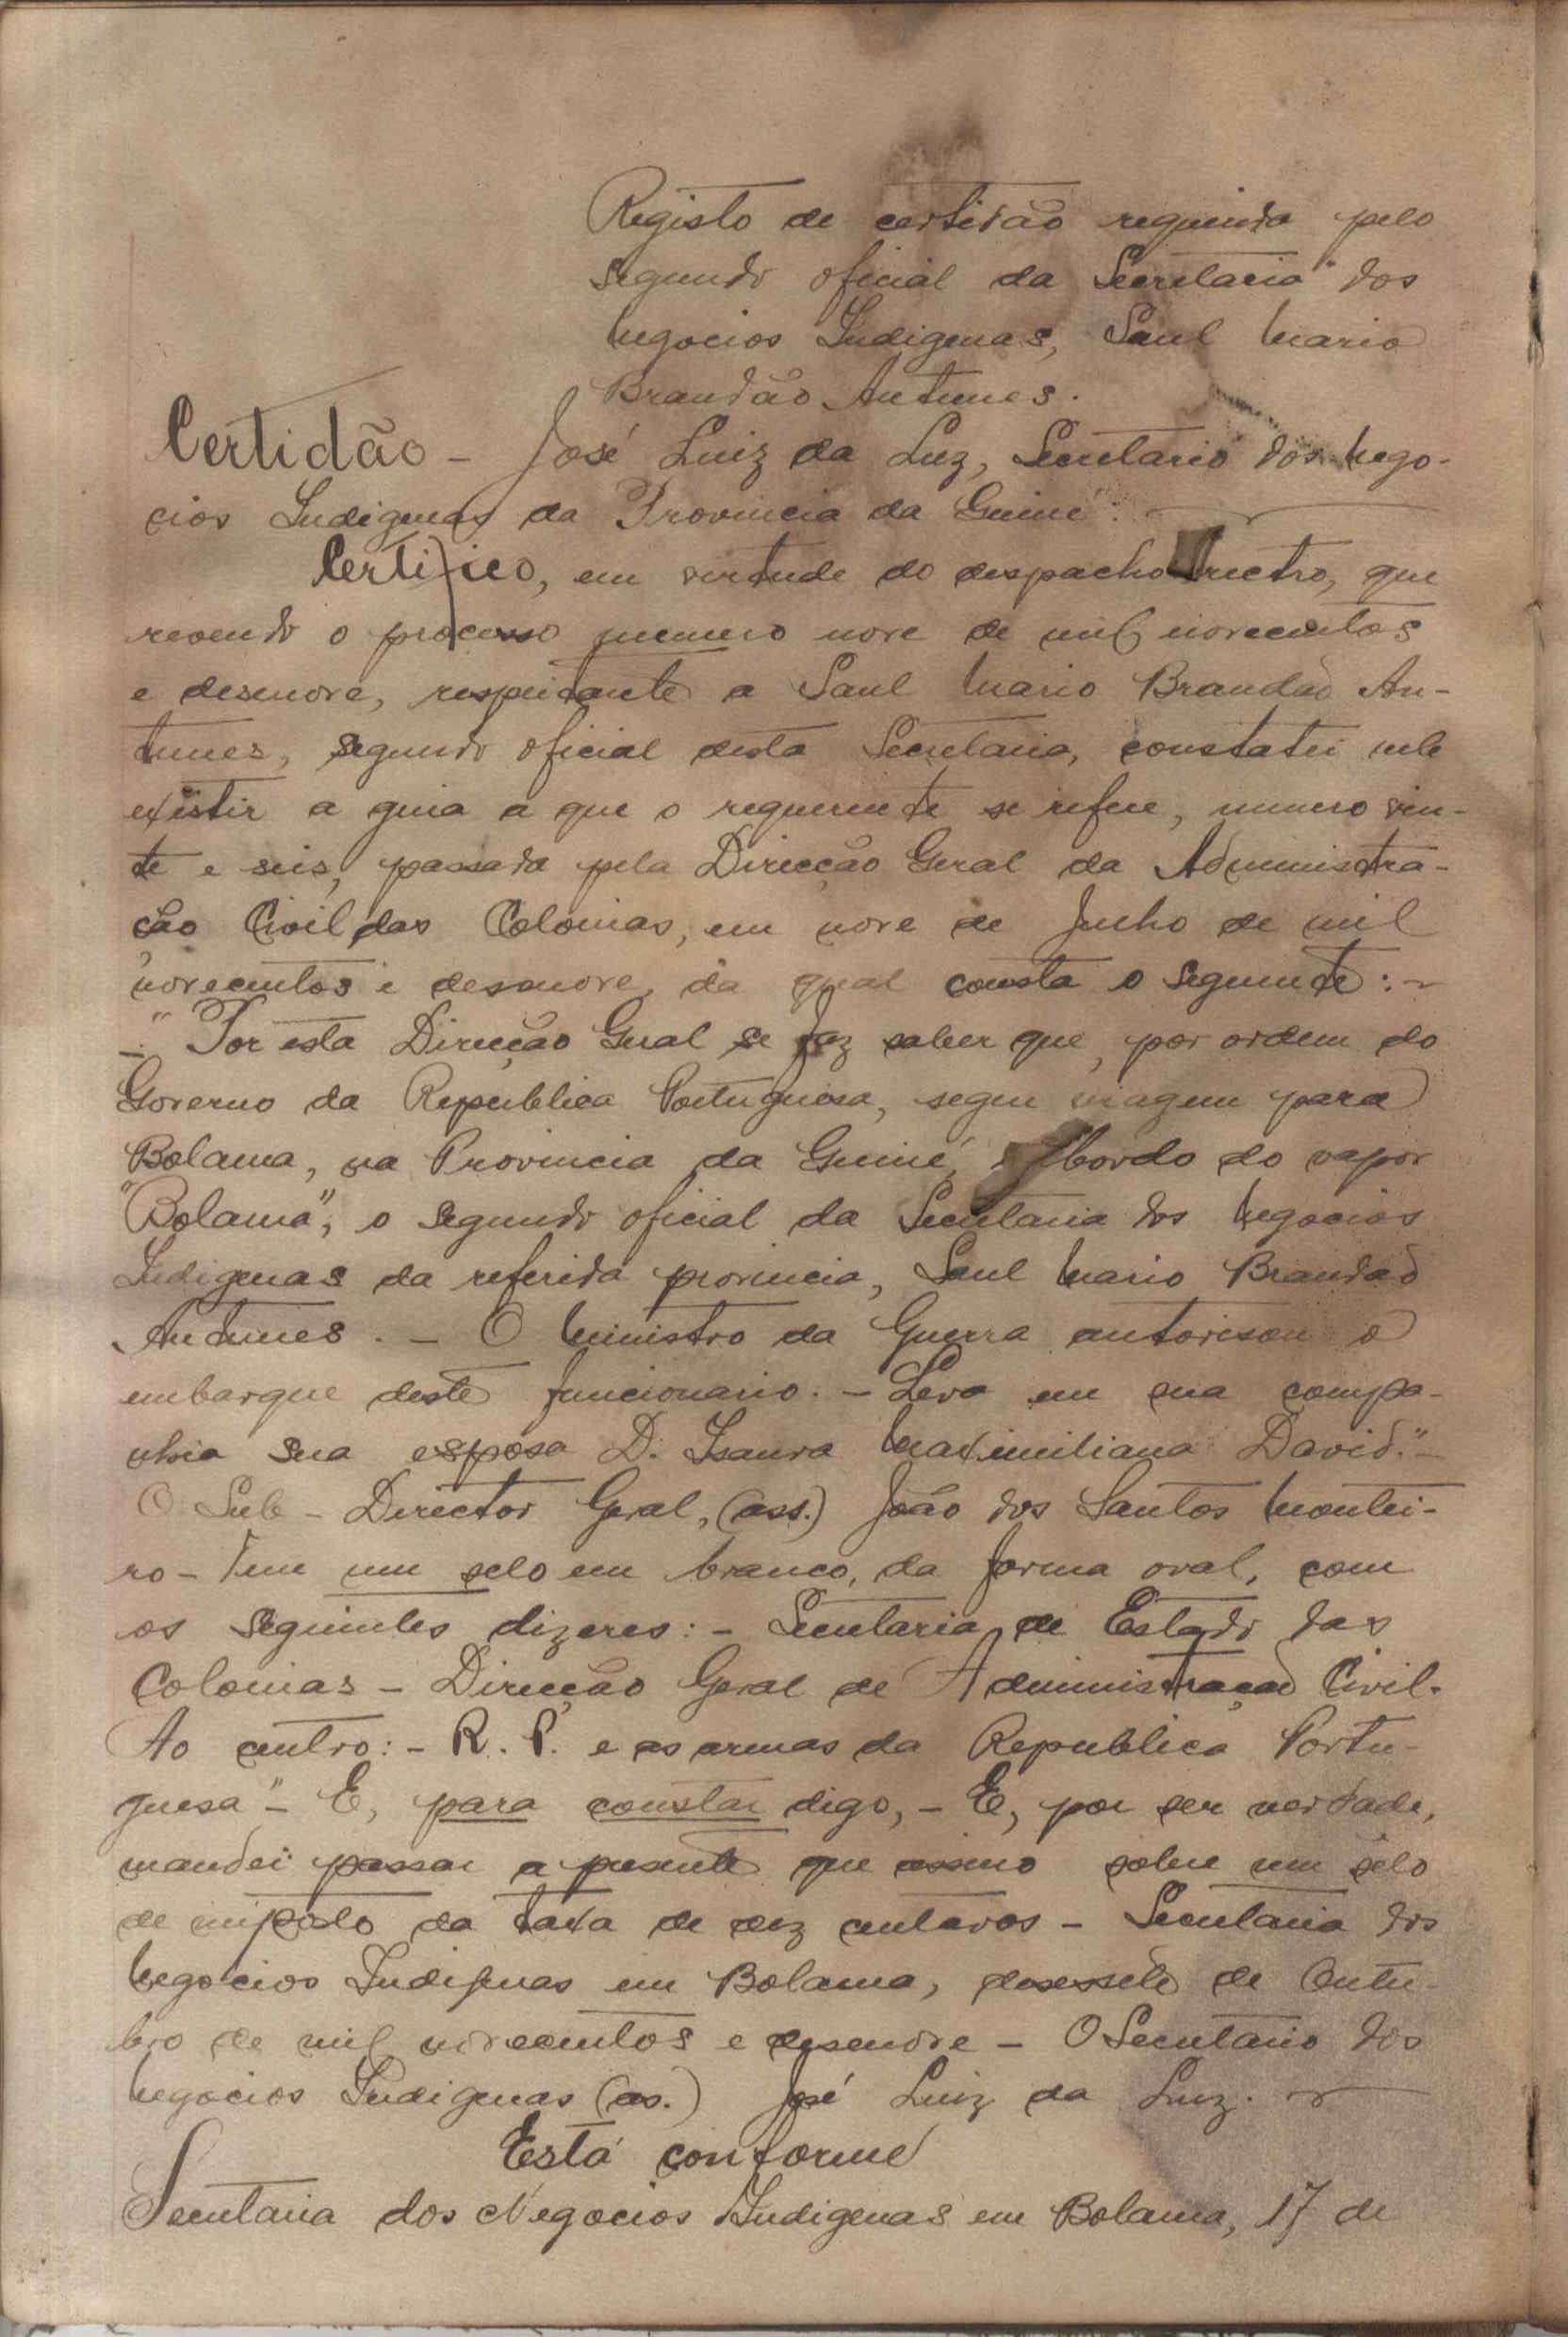 Registo de certidão requerida pelo
segundo oficial da Secretaria dos
Negocios Indigenas, Saul Mario
Brandão Antunes.
Certidão - José Luiz da Luz, Secretario dos Nego-
cios Indigenas da Provincia da Guiné.
Certifico, em virtude do despacho rectro, que
revendo o processo numero nove de mil novecentos
e desenove, respeitante a Saul Mario Brandão An-
tunes, segundo oficial desta Secretaria, constatei nele
existir a guia a que o requerente se refere, numero vin-
te e seis, passada pela Direcção Geral da Administra-
ção Civil das Colonias, em nove de Junho de mil
novecentos e desenove, da qual consta o seguinte: -
- "Por esta Direcção Geral se faz saber que, por ordem do
Governo da Republica Portuguesa, segue viagem para
Bolama, na Provincia da Guiné, a bordo do vapor
"Bolama", o segundo oficial da Secretaria dos Negocios
Indigenas da referida provincia, Saul Mario Brandão
Antunes. - O Ministro da Guerra autorisou o
embarque deste funcionario. - Leva em sua compa-
nhia sua esposa D. Isaura Maximiliana David." -
O Sub-Director Geral, (ass.) João dos Santos Montei-
ro - Tem um selo em branco, da forma oval, com
os seguintes dizeres: - Secretaria de Estado das
Colonias - Direcção Geral de Administração Civil.
Ao centro: - R. P. e as armas da Republica Portu-
guesa" - E, para constar digo, - E, por ser verdade,
mandei passar a presente que assino sobre um sêlo
de imposto da taxa de dez centavos - Secretaria dos
Negocios Indigenas em Bolama, desessete de Outu-
bro de mil novecentos e desenove - O Secretario dos
Negocios Indigenas (as.) José Luiz da Luz.
Está conforme
Secretaria dos Negocios Indigenas em Bolama, 17 de